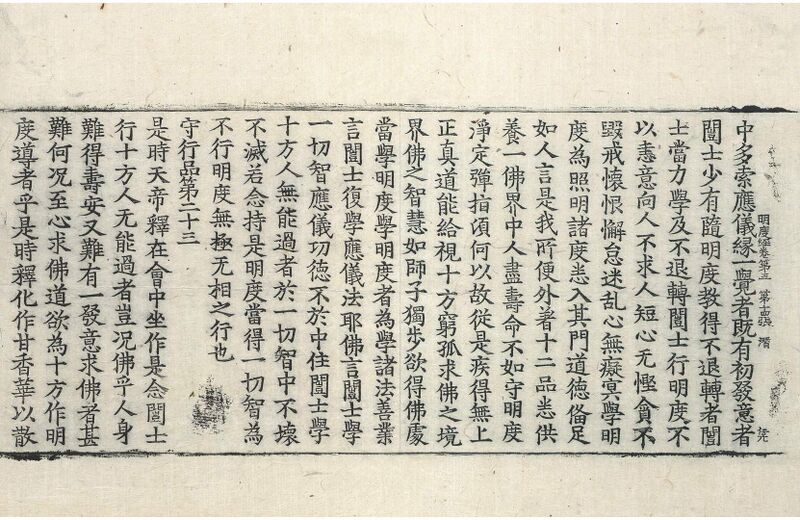 中多索應儀緣一覺者既有初發意者
明度經卷第五 第十五張 潛
闓士少有隨明度教得不退轉者闓
士當力學及不退轉闓士行明度不
以恚意向人不求人短心无慳貪不
毀戒懷恨懈怠迷乱心無癡冥學明
度為照明諸度悉入其門道德俻足
如人言是我所便外著十二品悉供
養一佛界中人盡壽命不如守明度
淨定彈指頃何以故從是疾得無上
正真道能給視十方窮孤求佛之境
界佛之智慧如師子獨步欲得佛處
當學明度學明度者為學諸法善業
言闓士復學應儀法耶佛言闓士學
一切智應儀功德不於中住闓士學
十方人無能過者於一切智中不壞
不滅若念持是明度當得一切智為
不行明度無極无相之行也
守行品第二十三
是時天帝釋在會中坐作是念闓士
行十方人无能過者豈况佛乎人身
難得壽安又難有一發意求佛者甚
難何况至心求佛道欲為十方作明
度導者乎是時釋化作甘香華以散